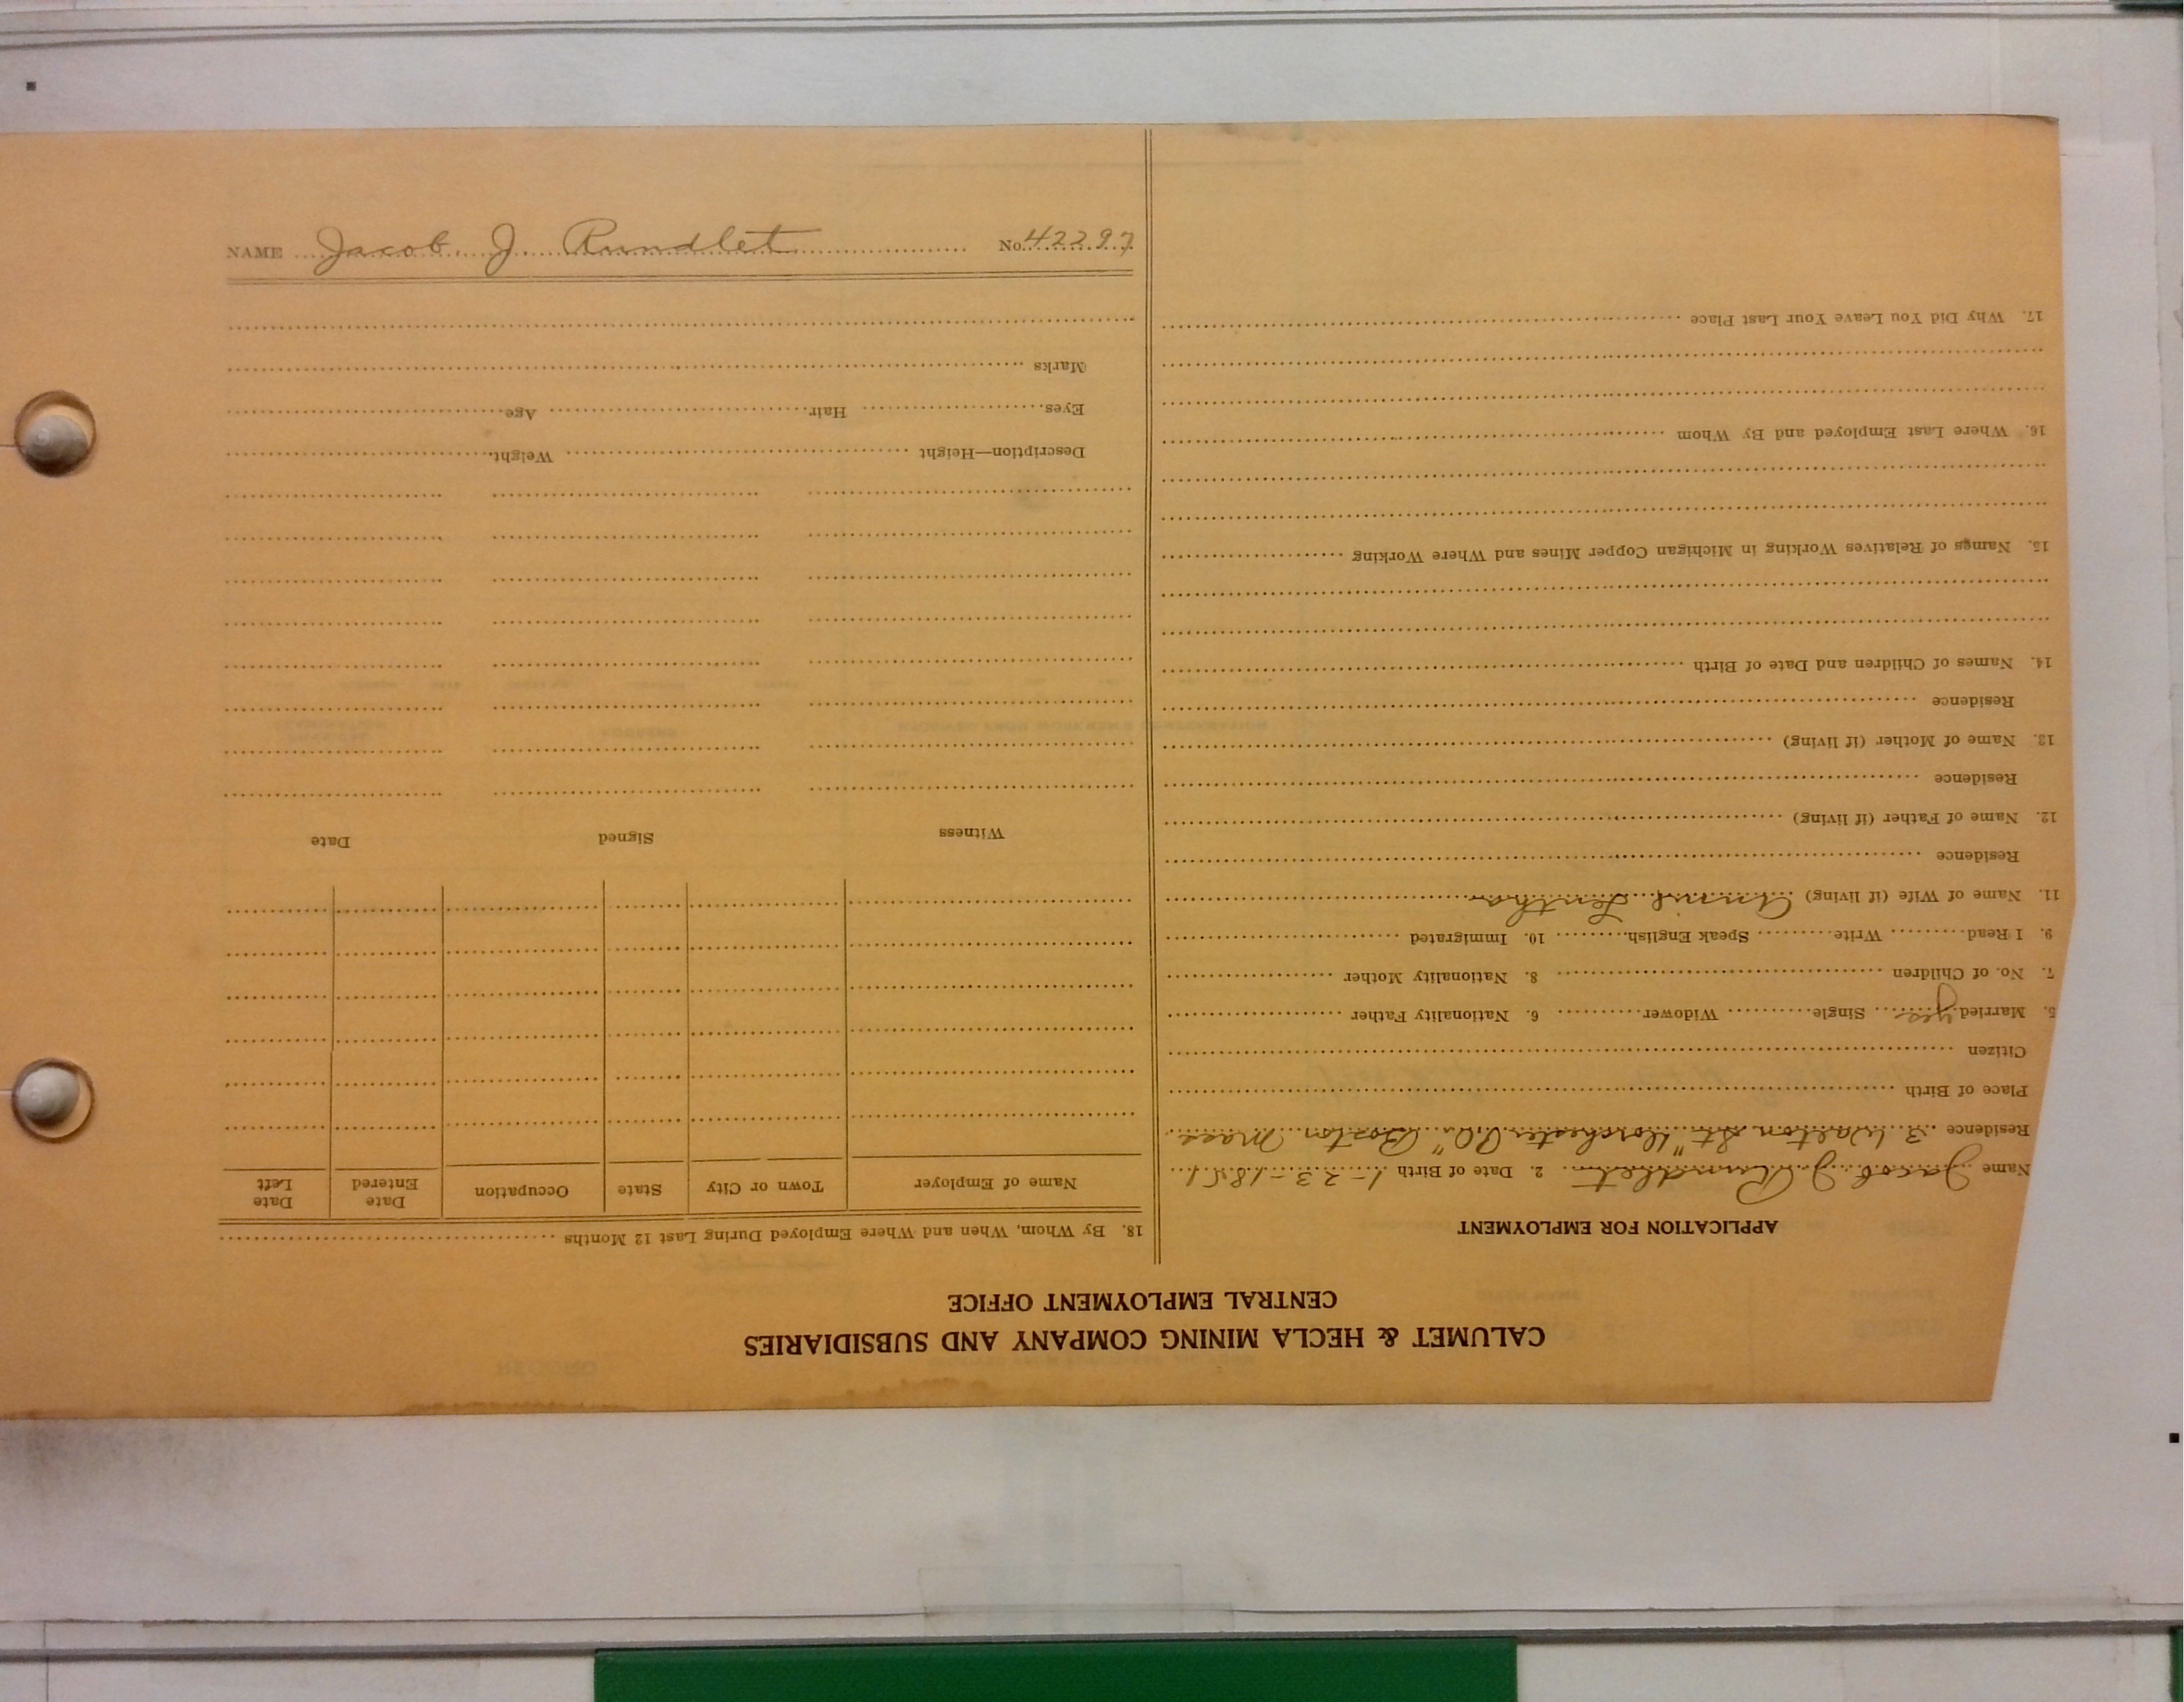 CALUMET & HECLA MINING COMPANY AND SUBSIDIARIES
CENTRAL EMPLOYMENT OFFICE
APPLICATION FOR EMPLOYMENT
Name Jacob J. Rundlet 2. Date of Birth 1-23-1851
Residence 3 Walton St "Dorchester Pl" Boston Mass
Place of Birth
Citizen
5. Married yes Single Widower 6. Nationality Father
7. No. of Children 8. Nationality Mother
9. I Read Write Speak English 10. Immigrated
11. Name of Wife (if living) Annie
Residence
12. Name of Father (if living)
Residence
13. Name of Mother (if living)
Residence
14. Names of Children and Date of Birth
15. Names of Relatives Working in Michigan Copper Mines and Where Working
16. Where Last Employed and By Whom
17. Why Did You Leave Your Last Place
18. By Whom, When and Where Employed During Last 12 Months
Name of Employer Town or City State Occupation Date Entered Date Left
Witness Signed Date
Description—Height Weight
Eyes Hair Age
Marks
NAME Jacob J. Rundlet No. 42297